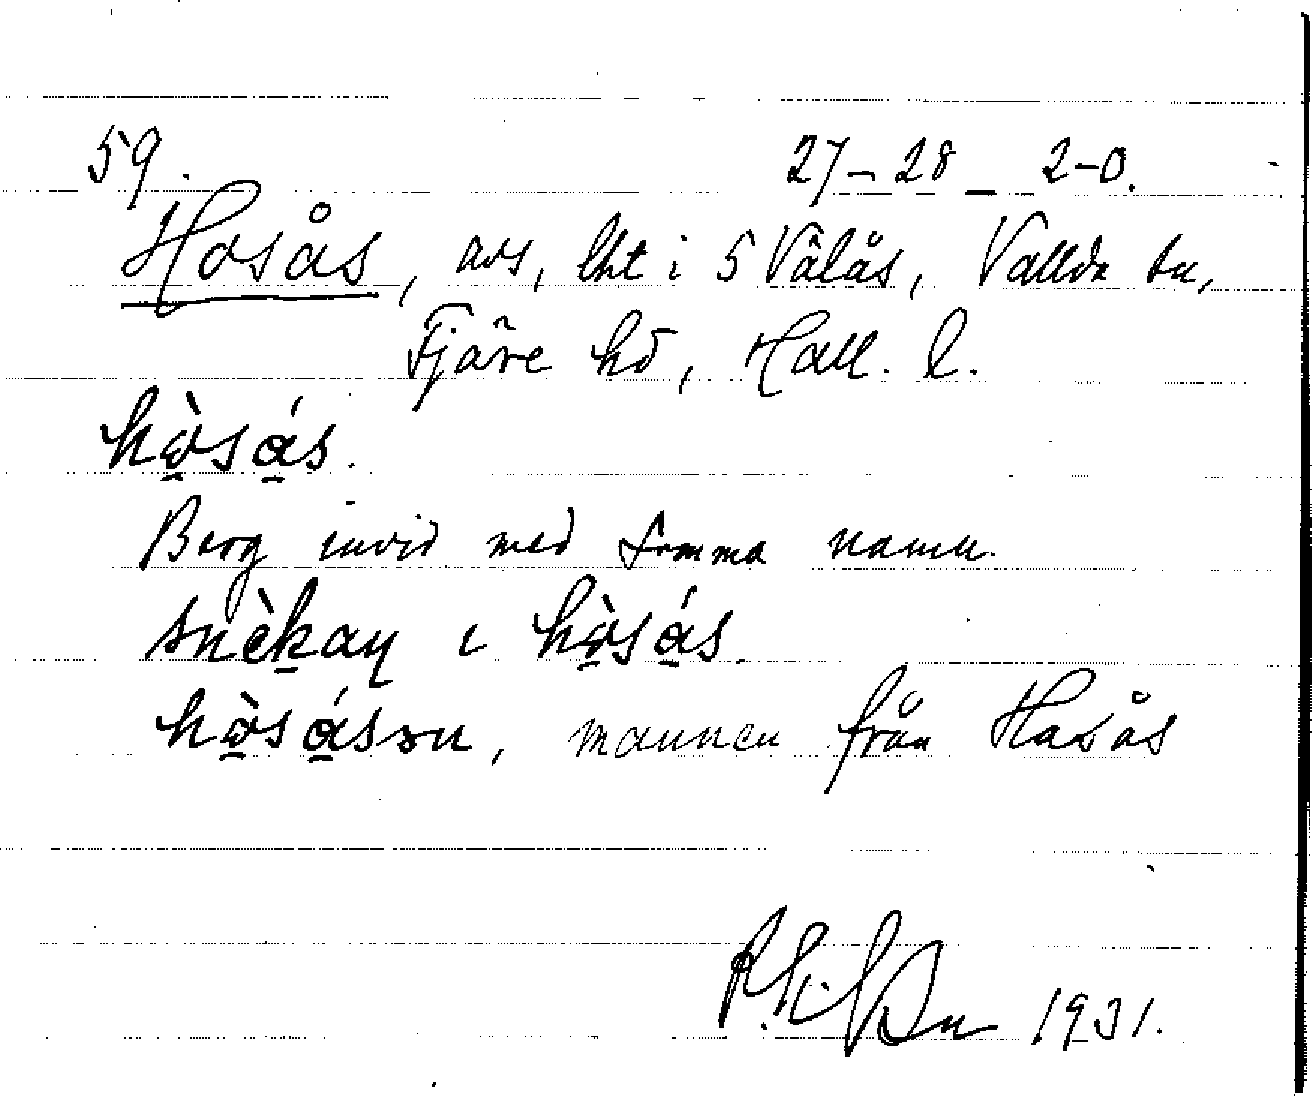 59. 27-28 - 2-0.
Hosås, avs, lht i 5 Vålås, Vallda sn,
Fjäre hd, Hall. l.
hò̱sá̱s.
Berg invid med samma namn.
snèḵaɳ ɩ hò̱sá̱s.
hò̱sá̱sɔn, mannen från Hosås
1931.